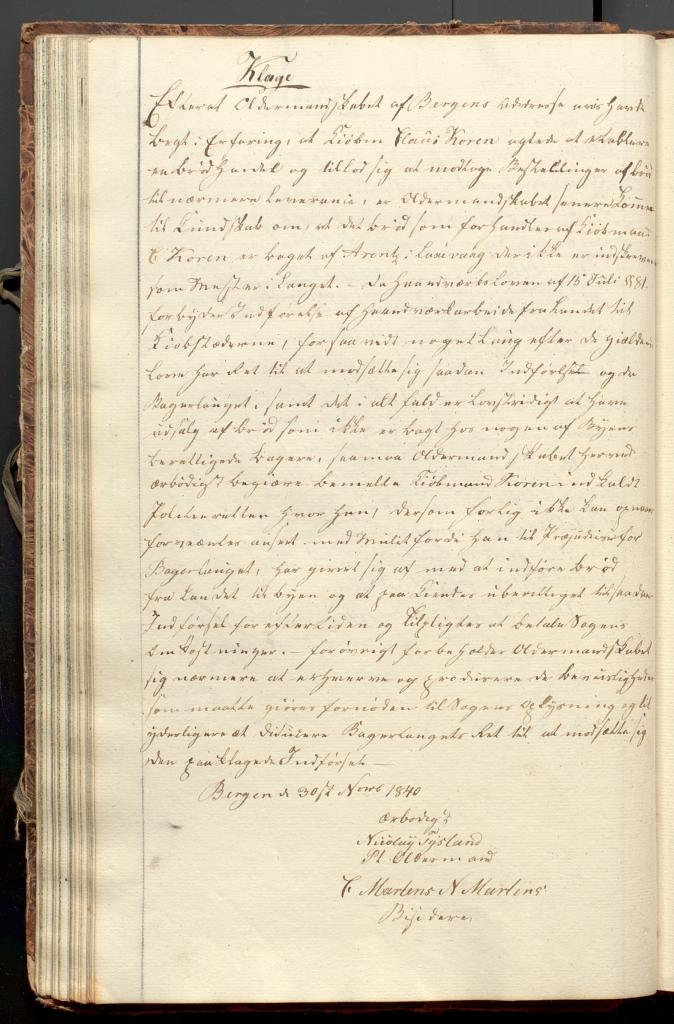 Klage
Efterat Oldermandskabet af Bergens Addresse avis havde
bragt i Erfaring, at Kiøbm Claus Koren agtede at etablere
en brødhandel og tillod sig at modtage Bestellinger af brød
til nærmere Leverance, er Oldermandskabet senere kommen
til Kundskab om, at det brød som forhandles af Kiøbmand
C Koren er baget af Arentz i Laxevaag der ikke er indskreven
som Mester i Lauget. – da Haandværksloven af 15 Juli
forbyder Indførelse af Haandværksarbeide fra Landet til
Kiøbstæderne, forsaavidt noget Laug efter de gieldende
Love har Ret til at modsætte sig saadan Indførsel og da
Bagerlauget, samt det i alt fald er lovstridigt at have
udsalg af brød som ikke er bagt hos nogen af Byens
berettigede bagere, saa maa Oldermandskabet herved
ærbødigst begiære bemeldte Kiøbmand Koren indkaldt
Politieretten hvor han, dersom forlig ikke kan opnaaes
forventes anseet med Mulkt fordi han til Præjudice for
Bagerlauget, har givet sig af med at indføre brød
fra Landet til byen og at paakiendes uberettiget til saadan
Indførsel for eftertiden og tilpligtes at betale Sagens
Omkostninger. – forøvrigt forbeholder Oldermandskabet
sig nærmere at erhverve og producere de beviisligheder
som maatte giøres fornøden til Sagens oplysning og til
yderligere at deducere Bagerlaugets Ret til at modsætte sig
den paaklagede Indførsel –
Bergen d 30st Novbr 1840
ærbødigst
Nicolay Tysland
pt. Oldermand
C Martens N Martens
Bisiddere